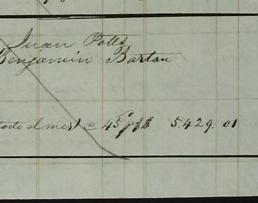 Juan Potts
Benjamin Barton
todo el mes = 45 5.429. 01